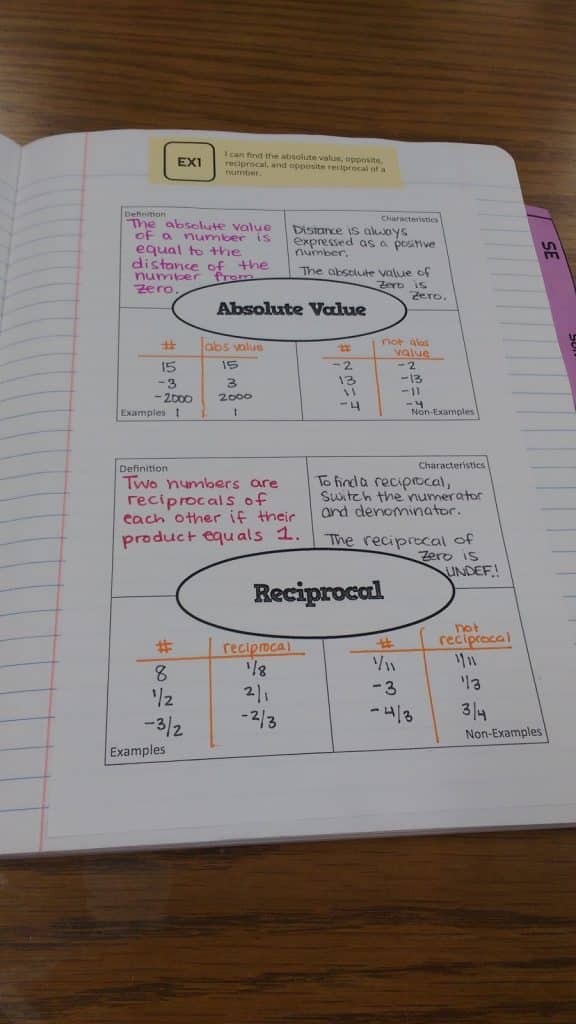 EX1
I can find the absolute value, opposite,
reciprocal, and opposite reciprocal of a
number.
SE
Definition
The absolute value
of a number is
equal to the
distance of the
number from
zero.
Characteristics
Distance is always
expressed as a positive
number.
The absolute value of
zero is
zero.
Absolute Value
# abs value
15 15
-3 3
-2000 2000
1 1
Examples
# not abs
value
-2 -2
13 -13
11 -11
-4 -4
Non-Examples
Definition
Two numbers are
reciprocals of
each other if their
product equals 1.
Characteristics
To find a reciprocal,
switch the numerator
and denominator.
The reciprocal of
zero is
UNDEF!
Reciprocal
# reciprocal
8 1/8
1/2 2/1
-3/2 -2/3
Examples
# not
reciprocal
1/11 1/11
-3 1/3
-4/3 3/4
Non-Examples